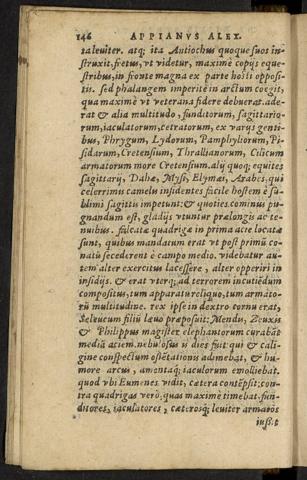 146 APPIANVS ALEX.
taleuiter. atq; ita Antiochus quoque suos in-
struxit, fretus, vt videtur, maximè copijs eque-
stribus, in fronte magna ex parte hosti opposi-
tis. sed phalangem imperitè in arctum coegit,
qua maximè vt veterana fidere debuerat. ade-
rat & alia multitudo, funditorum, sagittario-
rum, iaculatorum, cetratorum, ex varijs genti-
bus, Phrygum, Lydorum, Pamphyliorum, Pi-
sidarum, Cretensium, Thrallianorum, Cilicum
armatorum more Cretensium. alij quoq; equites
sagittarij, Dahæ, Mysi, Elymæi, Arabes, qui
celerrimis camelis insidentes facilè hostem è su-
blimi sagittis impetunt: & quoties cominus pu-
gnandum est, gladijs vtuntur prælongis ac te-
nuibus. falcatæ quadrigæ in prima acie locatæ
sunt, quibus mandatum erat vt post primū co-
natū secederent è campo medio. videbatur au-
tem alter exercitus lacessere, alter opperiri in
insidijs. & erat vterq; ad terrorem incutiēdum
compositus, tum apparatu reliquo, tum armato-
rū multitudine. rex ipse in dextro cornu erat,
Seleucum filiū læuo præposuit; Mendis, Zeuxis
& Philippus magister elephantorum curabāt
mediā aciem. nebulosus is dies fuit qui & cali-
gine conspectum ostētationis adimebat, & hu-
more arcus, amentaq; iaculorum emolliebat.
quod vbi Eumenes vidit, cætera contēpsit; con-
tra quadrigas verò, quas maximè timebat, fun-
ditores, iaculatores, cæterosq; leuiter armatos
iuss.t